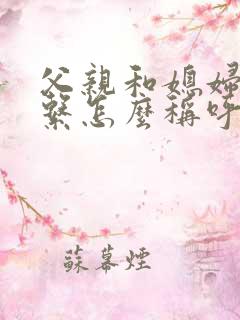 父親和媳婦
繫怎麼稱呼
蘇幕煙